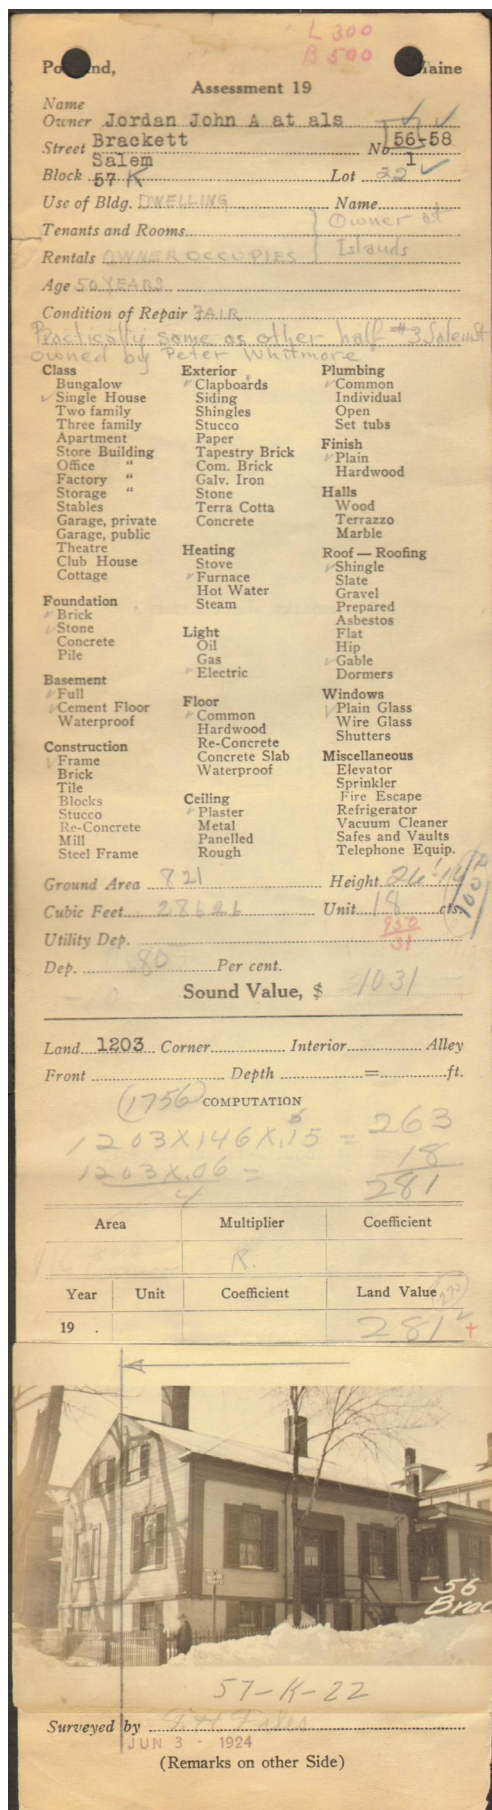 L 300
B 500
Portland, Maine
Assessment 19
Name
Owner Jordan John A at als
Street Brackett No. 56-58
Salem 1
Block 57 K Lot 22
Use of Bldg. DWELLING Name
Tenants and Rooms Owner at
Rentals OWNER OCCUPIES Islands
Age 50 YEARS
Condition of Repair FAIR
Practically same as other half #3 Salem St
owned by Peter Whitmore
Class
Bungalow
Single House
Two family
Three family
Apartment
Store Building
Office "
Factory "
Storage "
Stables
Garage, private
Garage, public
Theatre
Club House
Cottage
Foundation
Brick
Stone
Concrete
Pile
Basement
Full
Cement Floor
Waterproof
Construction
Frame
Brick
Tile
Blocks
Stucco
Re-Concrete
Mill
Steel Frame
Exterior
Clapboards
Siding
Shingles
Stucco
Paper
Tapestry Brick
Com. Brick
Galv. Iron
Stone
Terra Cotta
Concrete
Heating
Stove
Furnace
Hot Water
Steam
Light
Oil
Gas
Electric
Floor
Common
Hardwood
Re-Concrete
Concrete Slab
Waterproof
Ceiling
Plaster
Metal
Panelled
Rough
Plumbing
Common
Individual
Open
Set tubs
Finish
Plain
Hardwood
Halls
Wood
Terrazzo
Marble
Roof — Roofing
Shingle
Slate
Gravel
Prepared
Asbestos
Flat
Hip
Gable
Dormers
Windows
Plain Glass
Wire Glass
Shutters
Miscellaneous
Elevator
Sprinkler
Fire Escape
Refrigerator
Vacuum Cleaner
Safes and Vaults
Telephone Equip.
Ground Area 821 Height
Cubic Feet 28626 Unit 18 cts.
950
Utility Dep. 31
Dep. 80 Per cent.
Sound Value, $ 1031
Land 1203 Corner Interior Alley
Front Depth = ft.
(1756) COMPUTATION
1203 X 146 X .15 = 263
1203 X .06 = 18
4 281
Area Multiplier Coefficient
R.
Year Unit Coefficient Land Value
19 . 281 +
56
Brac
57-K-22
Surveyed by
JUN 3 - 1924
(Remarks on other Side)